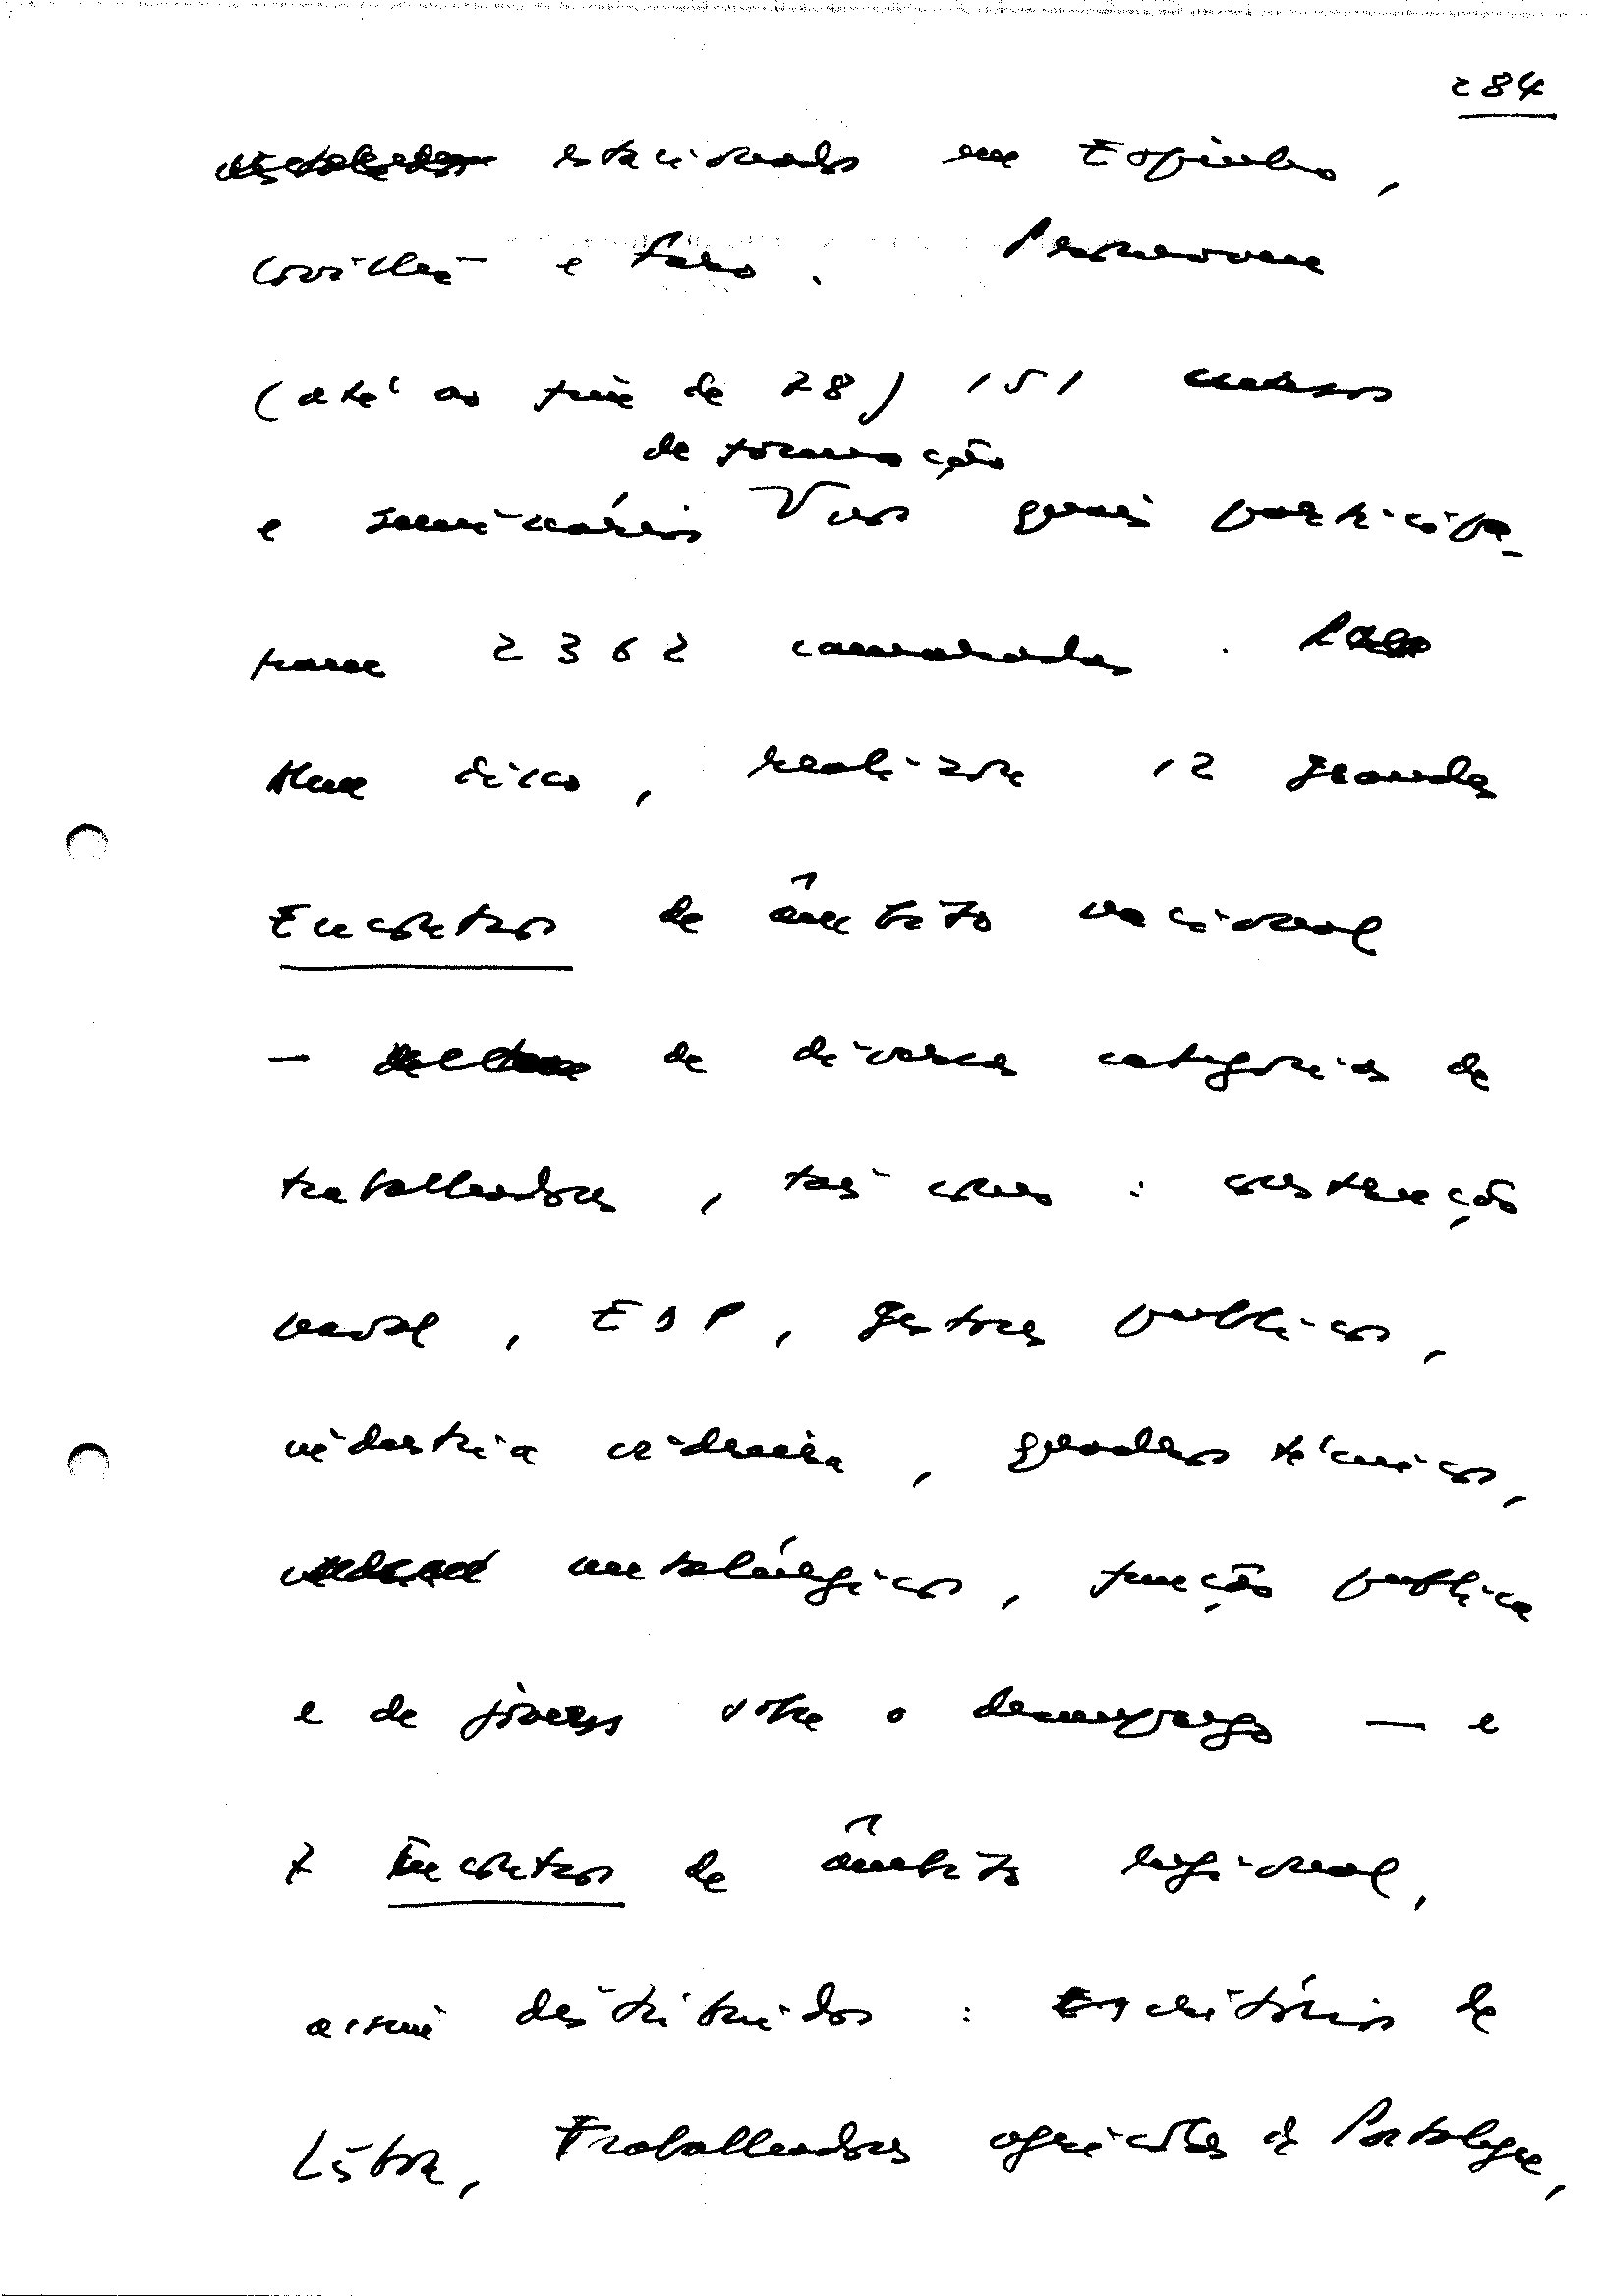 284
estacionados em Espinho,
Covilhã e Faro. Promoveu
(até ao fim de 78) 151 cursos
de formação
e seminários nos quais participa-
ram 2362 camaradas.
disso, realizou 12 grandes
Encontros de âmbito nacional
— de diversas categorias de
trabalhadores, tais como: construção
naval, EDP, gestores publicos,
indústria vidreira, quadros técnicos,
metalúrgicos, função publica
e de jovens sobre o desemprego — e
7 Encontros de âmbito regional,
assim distribuidos: Escritórios de
Lisboa, Trabalhadores agricolas de Portalegre,